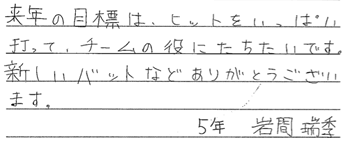 来年の目標は、ヒットをいっぱい
打って、チームの役にたちたいです。
新しいバットなどありがとうござい
ます。
5年 岩間 瑞季